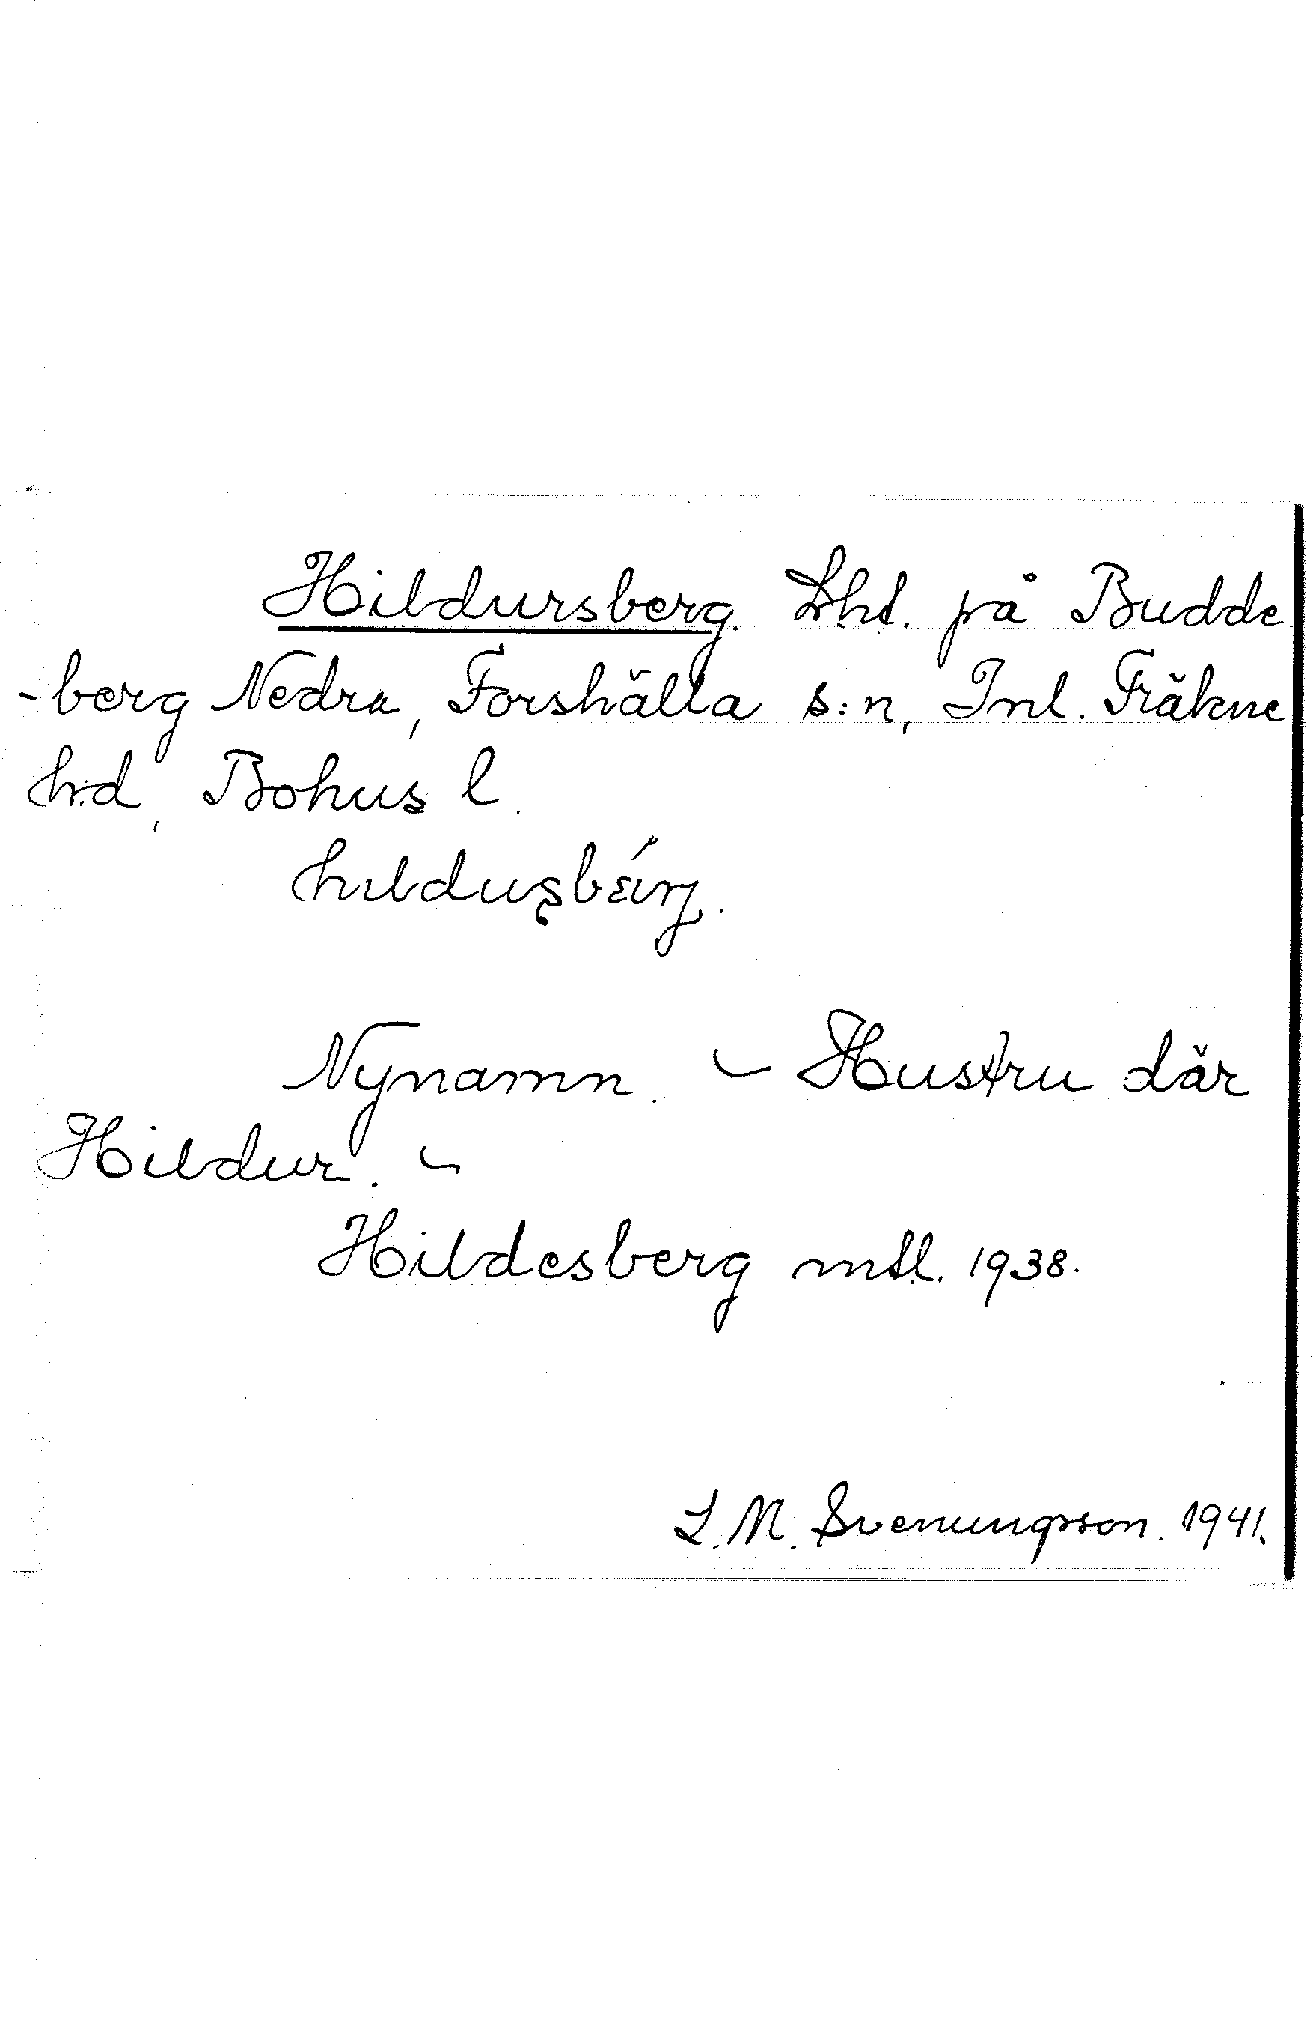 Hildursberg. Lht. på Budde
-berg Nedra, Forshälla s:n, Inl. Fräkne
hd, Bohus l.
Nynamn. – Hustru där
Hildur. –
Hildesberg mtl. 1938.
L. M. Svenungsson. 1941.